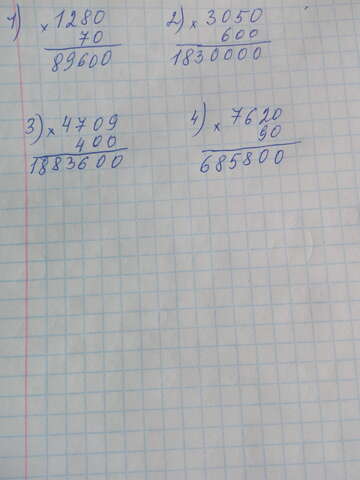 1) × 1280
70
89600
2) × 3050
600
1830000
3) × 4709
400
1883600
4) × 7620
90
685800